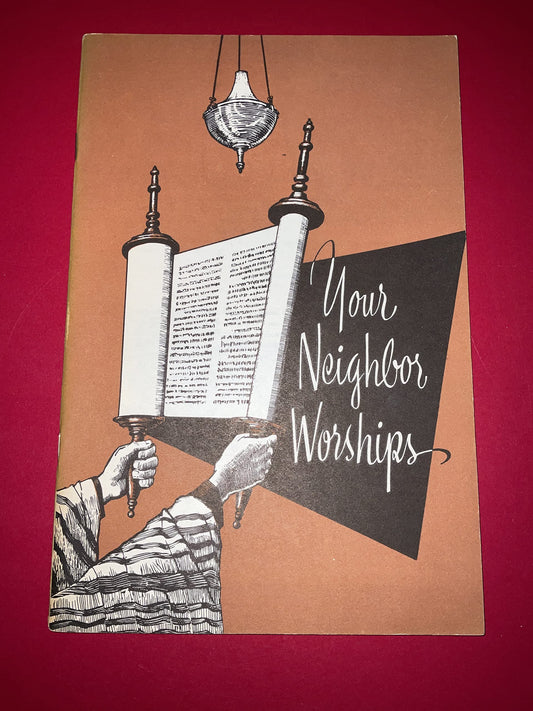 Your
Neighbor
Worships